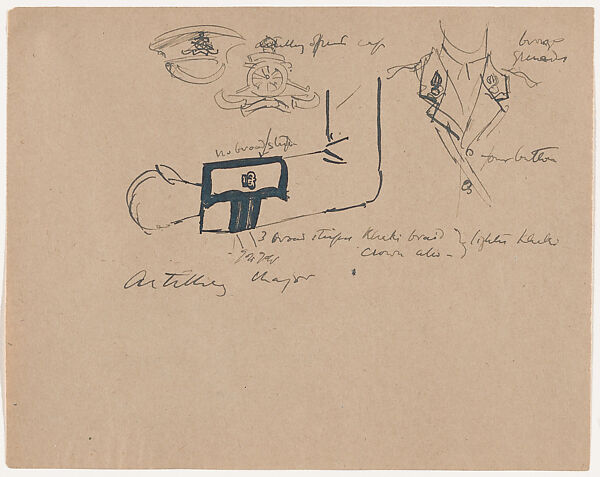 artillery officers cap
bronze
grenades
no broad stripe
four button
3 broad stripes Khaki braid } lighter khaki
Crown also -
Artillery Major